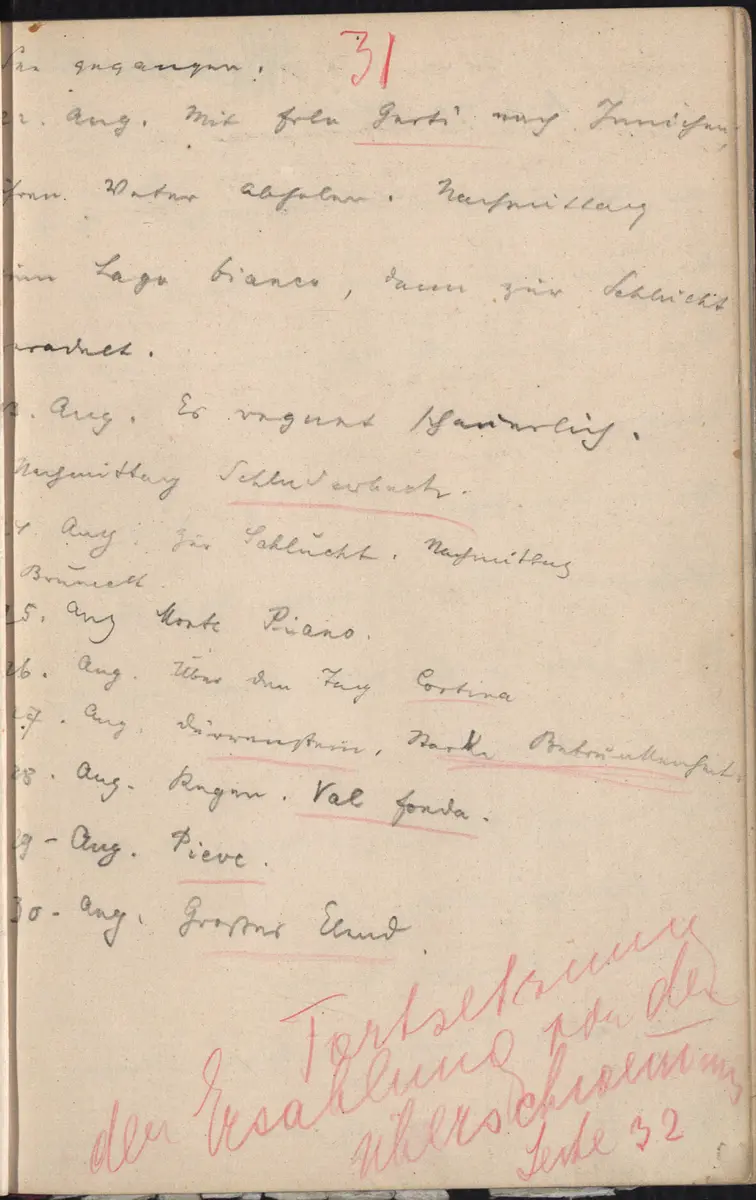 31
See gegangen.
22. Aug. Mit Frln Gerti nach Innichen,
ihren Vater abholen. Nachmittag
zum Lago bianco, dann zur Schlucht
geradelt.
23. Aug. Es regnet schauerlich.
Nachmittag Schluderbach.
24 Aug. zur Schlucht. Nachmittag
Bruneck.
25. Aug Monte Piano.
26. Aug. Über den Tag Cortina
27. Aug. Dürrenstein, Starke Betrunkenheit.
28. Aug. Regen. Val fonda.
29 - Aug. Pieve.
30 - Aug. Großes Elend
Fortsetzung
der Erzählung von der
Überschwemmung
Seite 32